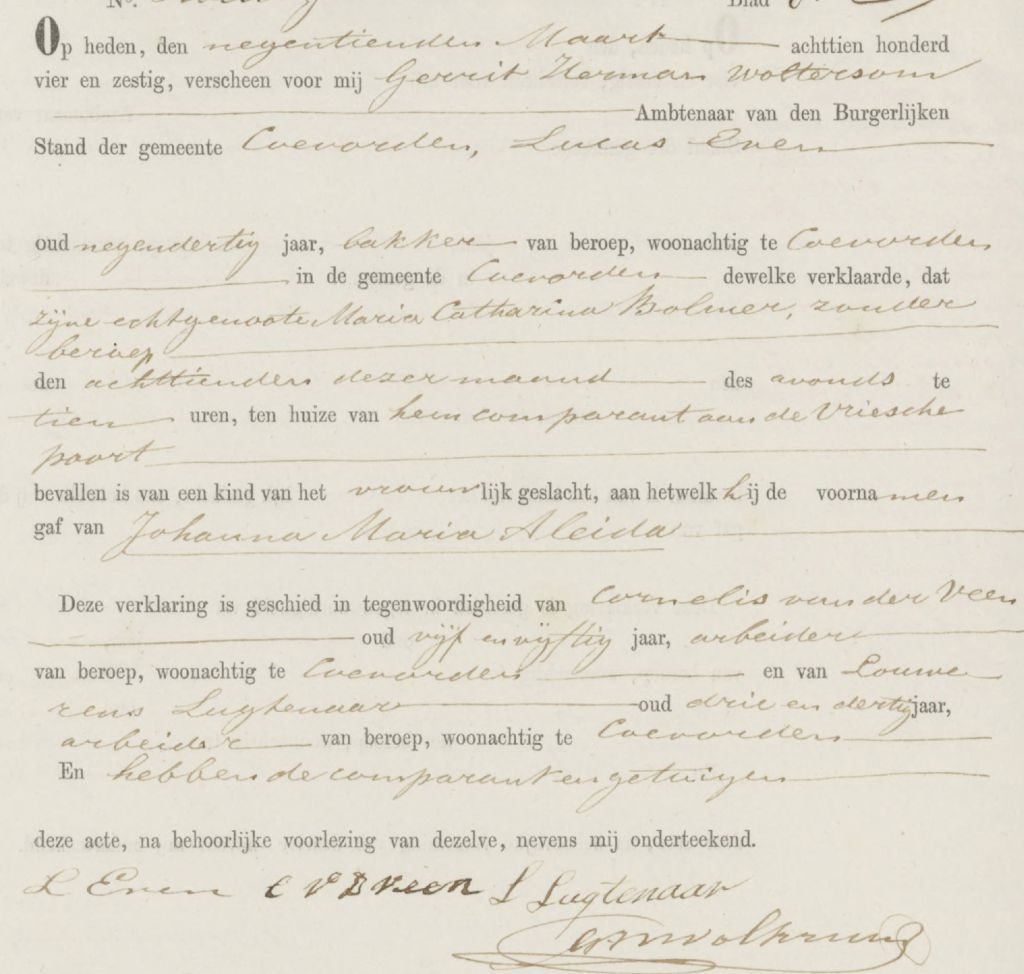 N°.
Blad
Op heden, den negentienden Maart achttien honderd
vier en zestig, verscheen voor mij Gerrit Herman Woltersom
Ambtenaar van den Burgerlijken
Stand der gemeente Coevorden, Lucas Even
oud negendertig jaar, bakker van beroep, woonachtig te Coevorden
in de gemeente Coevorden dewelke verklaarde, dat
zijne echtgenoote Maria Catharina Bolmer, zonder
beroep
den achttienden dezer maand des avonds te
tien uren, ten huize van hem comparant aan de Vriesche
poort
bevallen is van een kind van het vrouwlijk geslacht, aan hetwelk hij de voornamen
gaf van Johanna Maria Aleida
Deze verklaring is geschied in tegenwoordigheid van Cornelis van der Veen
oud vijf en vijftig jaar, arbeider
van beroep, woonachtig te Coevorden en van Louwe
rens Lugtenaar oud drie en dertig jaar,
arbeider van beroep, woonachtig te Coevorden
En hebben de comparant en getuigen
deze acte, na behoorlijke voorlezing van dezelve, nevens mij onderteekend.
L Even C V D Veen L Lugtenaar